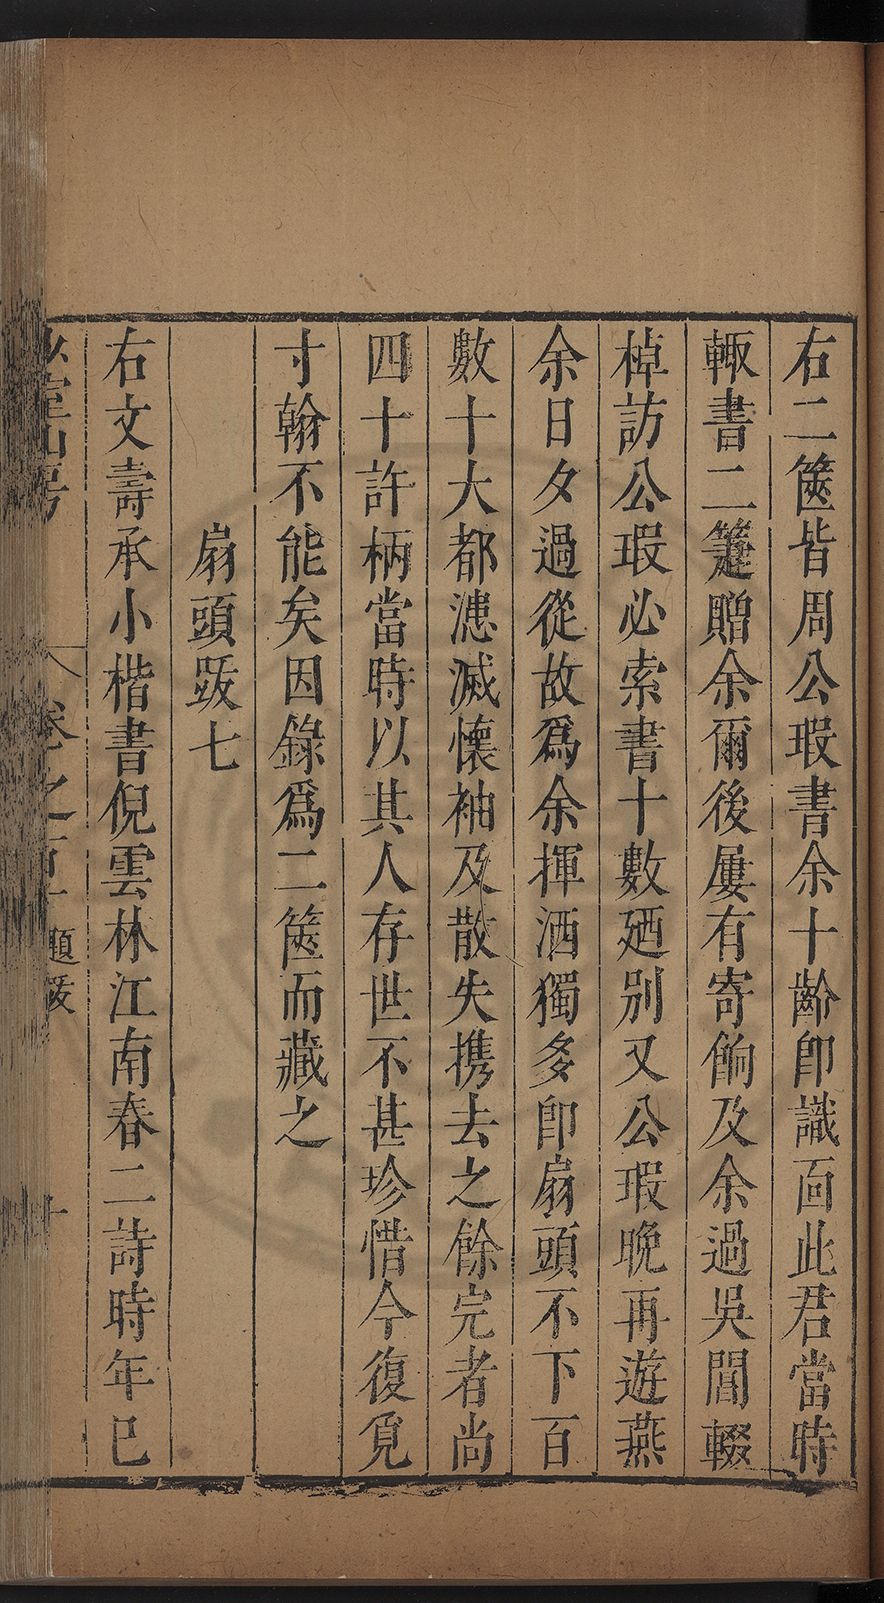 右二箧皆周公瑕書余十齡卽識靣此君當時
輙書二箑贈余爾後屢有寄餉及余過吳閶輟
棹訪公瑕必索書十數廼別又公瑕晚再遊燕
余日夕過從故爲余揮洒獨多卽扇頭不下百
數十大都漶滅懷袖及散失携去之餘完者尚
四十許柄當時以其人存世不甚珍惜今復覓
寸翰不能矣因錄爲二箧而藏之
扇頭跋七
右文壽承小楷書倪雲林江南春二詩時年巳
室山房 卷之百 題跋 十